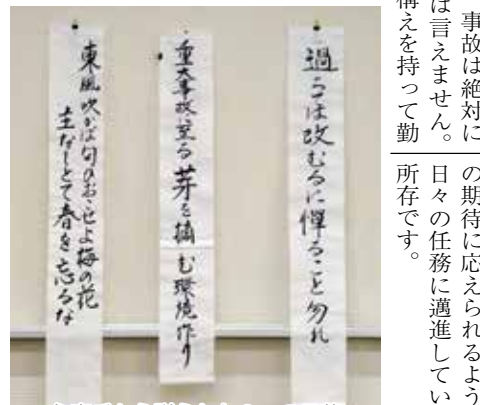 事故は絶対に
は言えません。
構えを持って勤
の期待に応えられるよう
日々の任務に邁進してい
所存です。
過ちは改むるに憚ること勿れ
重大事故に至る芽を摘む環境作り
東風吹かば匂ひおこせよ梅の花
主なしとて春を忘るな